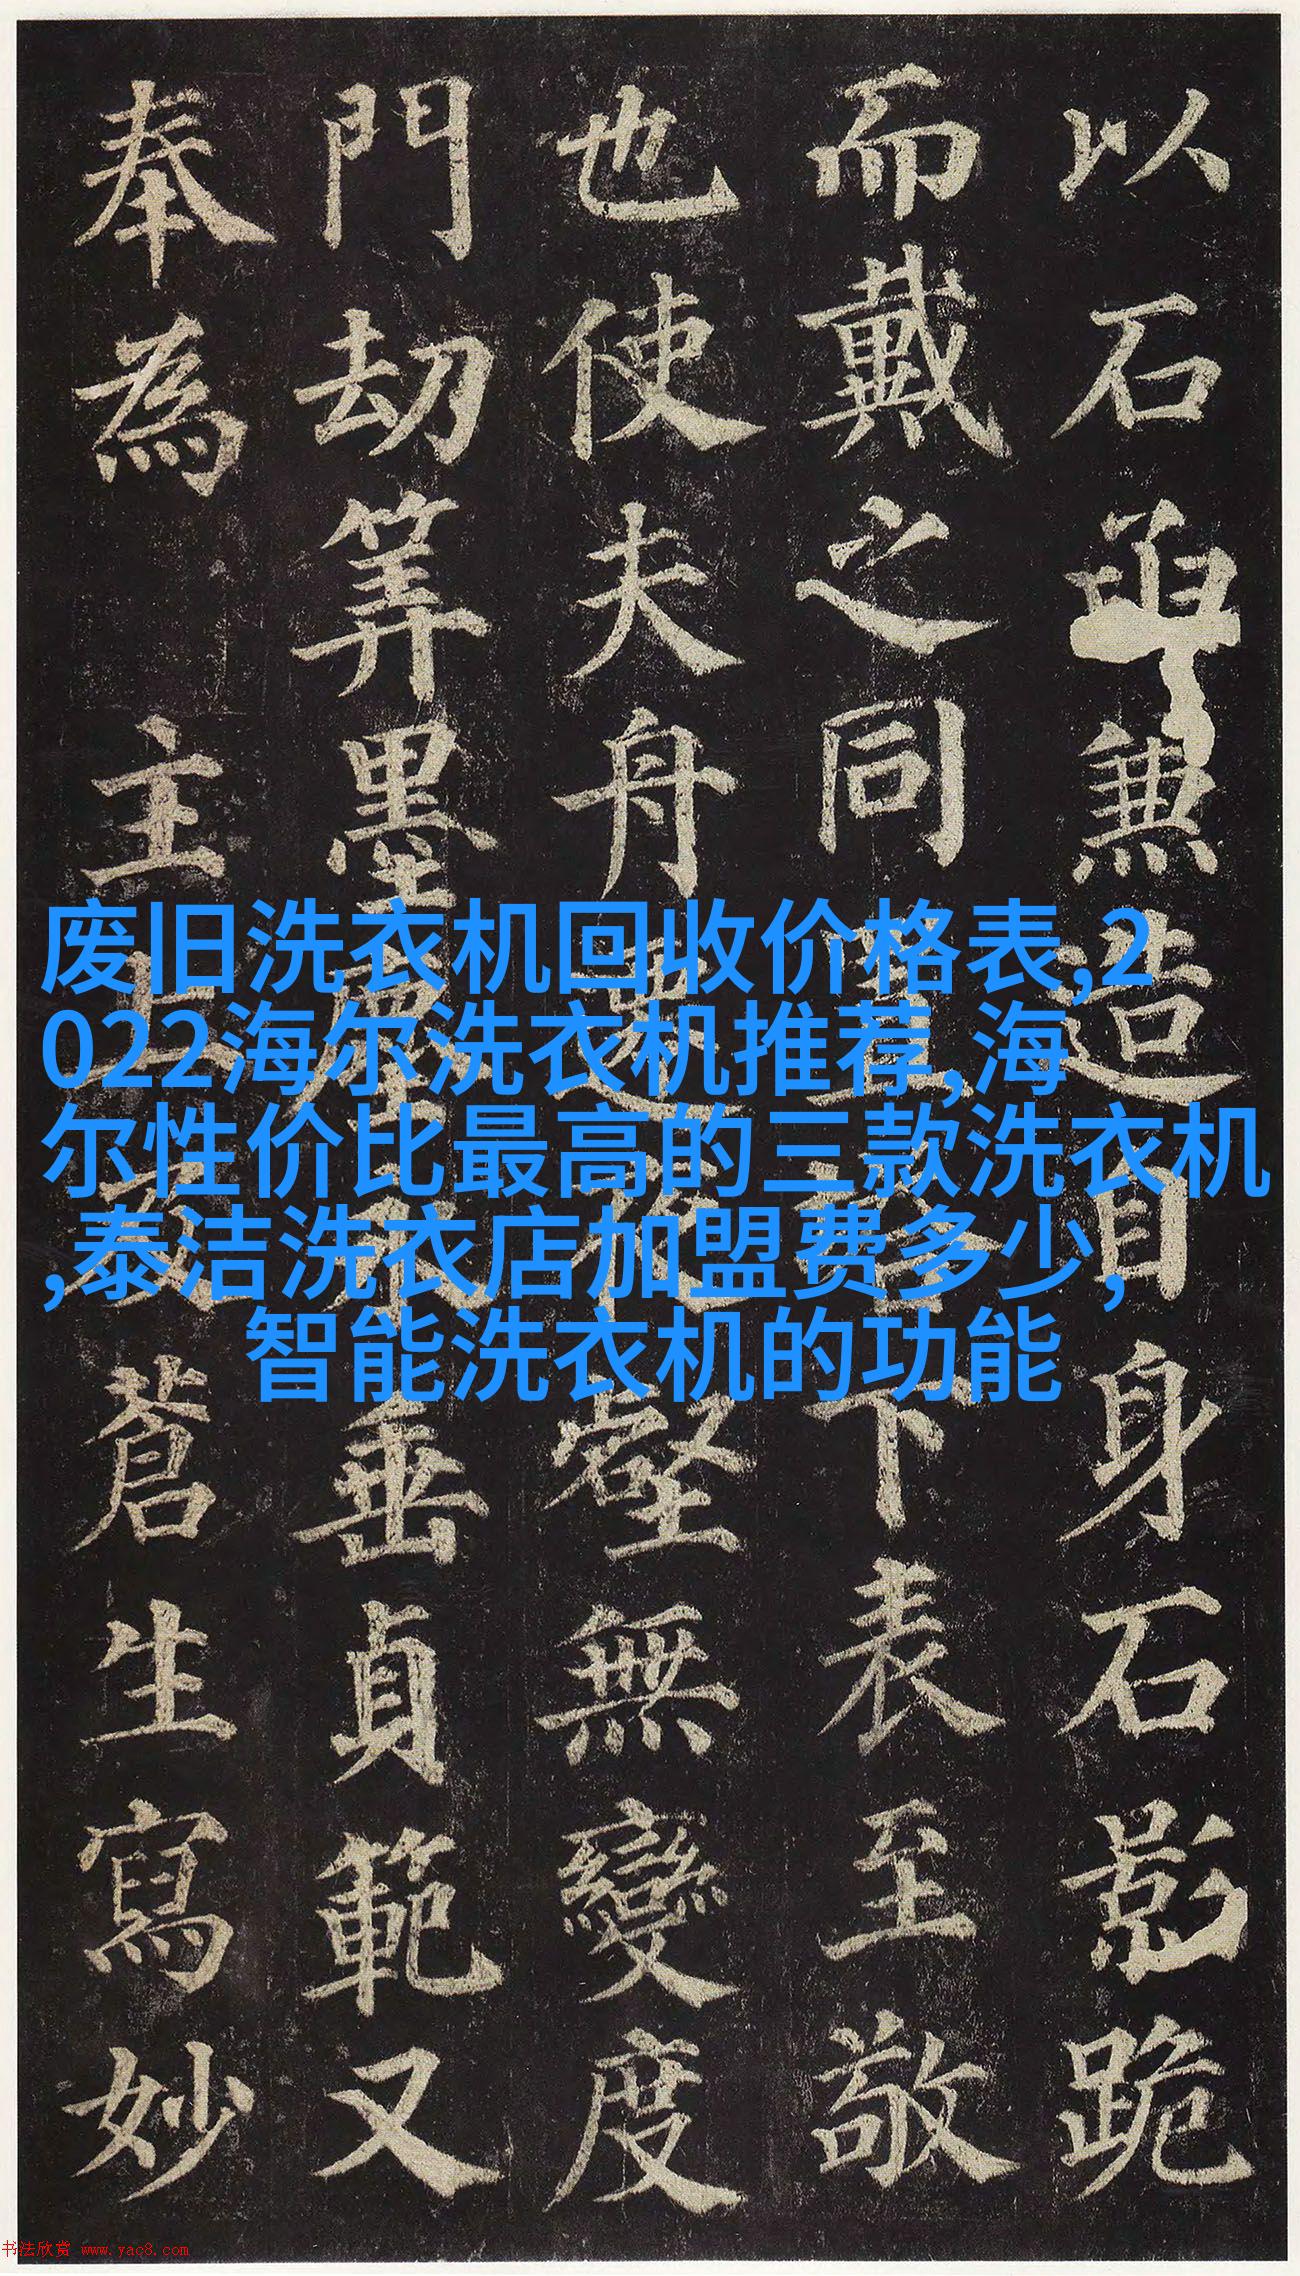 以石函兼造自身石影跪
而戴之同置塔下表至敬
也使夫舟遷夜壑無變度
門劫筭墨塵永垂貞範又
奉為主上及蒼生寫妙
废旧洗衣机回收价格表,2
022海尔洗衣机推荐,海
尔性价比最高的三款洗衣机
,泰洁洗衣店加盟费多少,
智能洗衣机的功能
书法欣赏 www.yac8.com